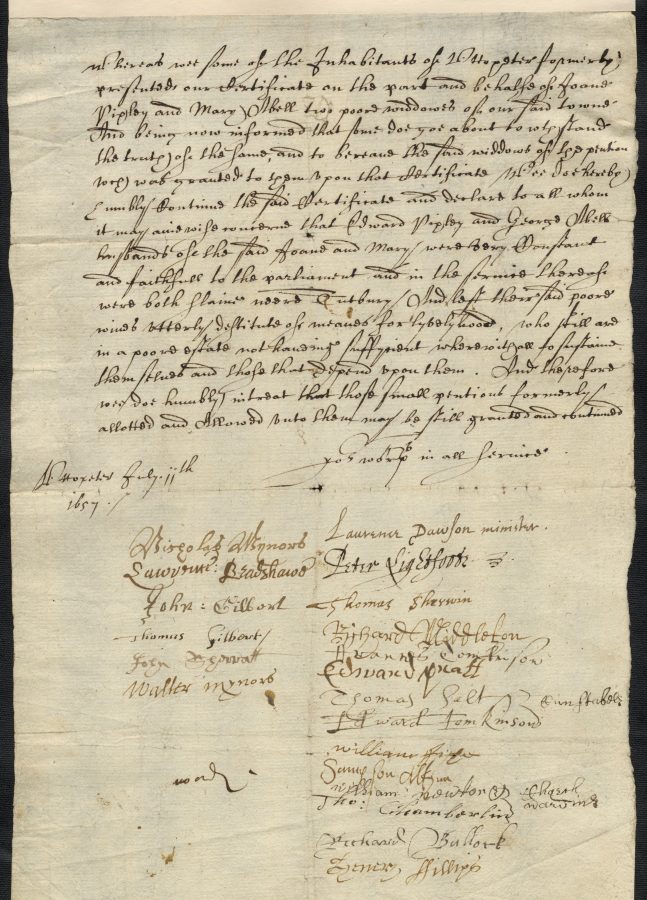 Whereas wee some of the Inhabitants of Uttoxeter formerly
presented our Certificate on the part and behalfe of Joane
Pipley and Mary Abell two poore widdowes of our said towne
And being now informed that some doe goe about to wthstand
the truth of the same, and to bereave the said widdows of the pention
wch was granted to them upon that Certificate Wee doe hereby
humbly Continue the said Certificate and declare to all whom
it may anie wise concerne that Edward Pipley and George Abell
husbands of the said Joane and Mary were very Constant
and faithfull to the parliament and in the service thereof
were both slaine neere Tutbury And left their said poore
wives utterly destitute of meanes for lyvelyhood, who still are
in a poore estate not haveing suffycient wherewithall to sustaine
themselves and those that depend upon them. And therefore
wee doe humbly intreat that those small pentions formerly
allotted and Allowed unto them may be still granted and continued
yor worpps in all service
Uttoxeter July 11th
1657
Nicholas Mynors
Lawrence Dawson minister
Lawrence Bradshawe
Peter Lightfoote
John Gilbert
Thomas Sherwin
Thomas Gilbert
Richard Middleton
John
Edward Pratt
Walter Mynors
Thomas Salt Cunstable
Edward Tomkinson
william
Sampson
william Newton Church
Tho: Chamberlin wardins
wood
Richard Bullock
Henery Phillips